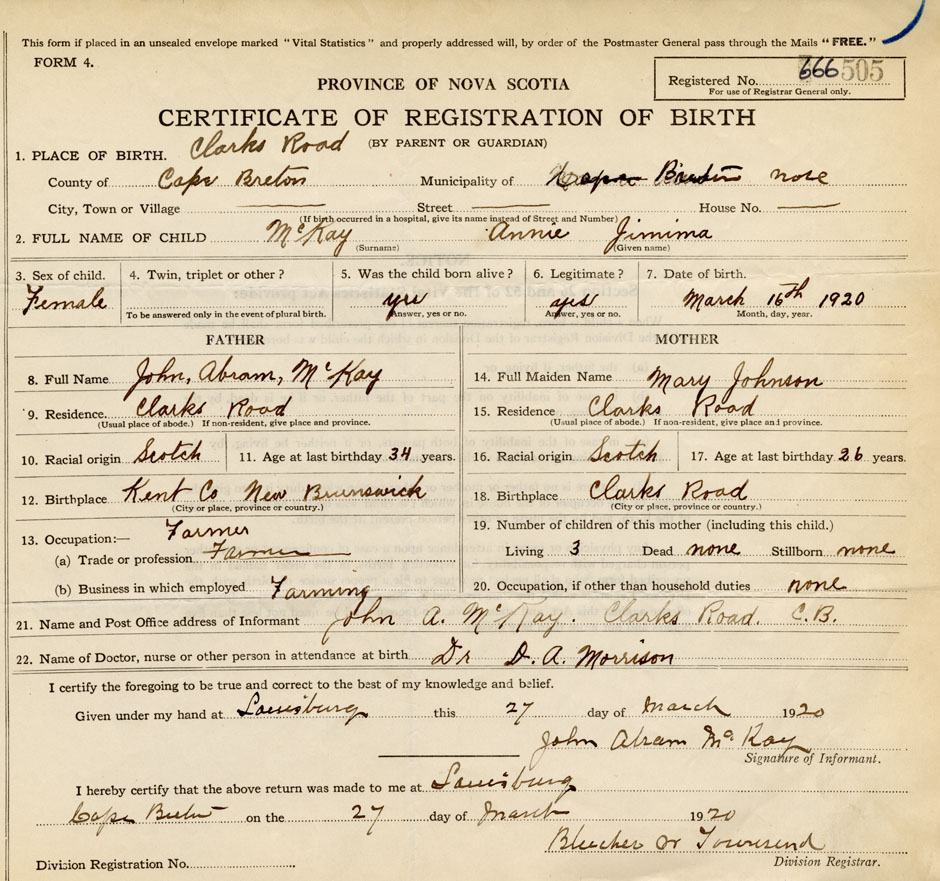 This form if placed in an unsealed envelope marked "Vital Statistics" and properly addressed will, by order of the Postmaster General pass through the Mails "FREE."
FORM 4.
Registered No. 666 505
For use of Registrar General only.
PROVINCE OF NOVA SCOTIA
CERTIFICATE OF REGISTRATION OF BIRTH
(BY PARENT OR GUARDIAN)
1. PLACE OF BIRTH. Clarks Road
County of Cape Breton Municipality of Cape Breton
City, Town or Village Street House No.
(If birth occurred in a hospital, give its name instead of Street and Number)
2. FULL NAME OF CHILD McKay Annie Jimima
(Surname) (Given name)
3. Sex of child. 4. Twin, triplet or other? 5. Was the child born alive? 6. Legitimate? 7. Date of birth.
Female yes yes March 16th 1920
To be answered only in the event of plural birth. Answer, yes or no. Answer, yes or no. Month, day, year.
FATHER
8. Full Name John, Abram, McKay
9. Residence. Clarks Road
(Usual place of abode.) If non-resident, give place and province.
10. Racial origin Scotch 11. Age at last birthday 34 years.
12. Birthplace Kent Co New Brunswick
(City or place, province or country.)
13. Occupation:— Farmer
(a) Trade or profession Farmer
(b) Business in which employed Farming
MOTHER
14. Full Maiden Name Mary Johnson
15. Residence Clarks Road
(Usual place of abode.) If non-resident, give place and province.
16. Racial origin Scotch 17. Age at last birthday 26 years.
18. Birthplace Clarks Road
(City or place, province or country.)
19. Number of children of this mother (including this child.)
Living 3 Dead none Stillborn none
20. Occupation, if other than household duties none
21. Name and Post Office address of Informant John A. McKay. Clarks Road. C.B.
22. Name of Doctor, nurse or other person in attendance at birth Dr D. A. Morrison
I certify the foregoing to be true and correct to the best of my knowledge and belief.
Given under my hand at Louisburg this 27 day of March 1920
John Abram McKay
Signature of Informant.
I hereby certify that the above return was made to me at Louisburg
Cape Breton on the 27 day of March 1920
Townsend
Division Registration No. Division Registrar.